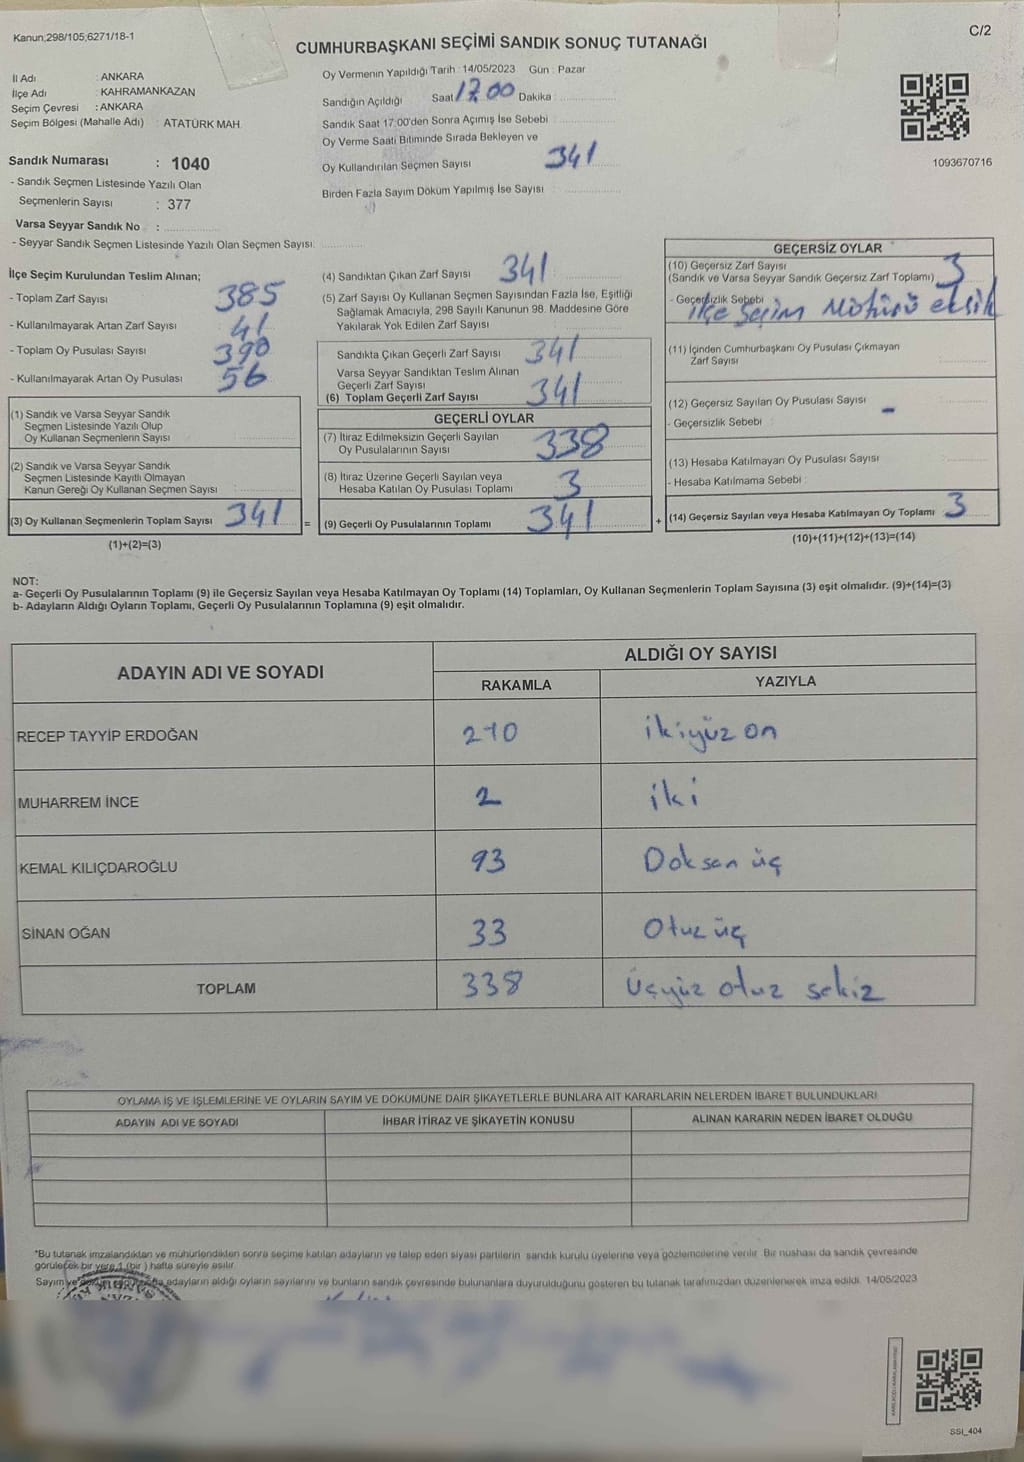 Kanun;298/105;6271/18-1
C/2
CUMHURBAŞKANI SEÇİMİ SANDIK SONUÇ TUTANAĞI
İl Adı : ANKARA
İlçe Adı : KAHRAMANKAZAN
Seçim Çevresi : ANKARA
Seçim Bölgesi (Mahalle Adı) : ATATÜRK MAH.
Sandık Numarası : 1040
- Sandık Seçmen Listesinde Yazılı Olan
Seçmenlerin Sayısı : 377
Varsa Seyyar Sandık No :
- Seyyar Sandık Seçmen Listesinde Yazılı Olan Seçmen Sayısı:
Oy Vermenin Yapıldığı Tarih : 14/05/2023 Gün : Pazar
Sandığın Açıldığı Saat 17.00 Dakika :
Sandık Saat 17:00'den Sonra Açımış İse Sebebi
Oy Verme Saati Bitiminde Sırada Bekleyen ve
Oy Kullandırılan Seçmen Sayısı 341
Birden Fazla Sayım Döküm Yapılmış İse Sayısı :
1093670716
İlçe Seçim Kurulundan Teslim Alınan;
- Toplam Zarf Sayısı 385
- Kullanılmayarak Artan Zarf Sayısı 41
- Toplam Oy Pusulası Sayısı 390
- Kullanılmayarak Artan Oy Pusulası 56
(1) Sandık ve Varsa Seyyar Sandık
Seçmen Listesinde Yazılı Olup
Oy Kullanan Seçmenlerin Sayısı
(2) Sandık ve Varsa Seyyar Sandık
Seçmen Listesinde Kayıtlı Olmayan
Kanun Gereği Oy Kullanan Seçmen Sayısı
(3) Oy Kullanan Seçmenlerin Toplam Sayısı 341 =
(1)+(2)=(3)
(4) Sandıktan Çıkan Zarf Sayısı 341
(5) Zarf Sayısı Oy Kullanan Seçmen Sayısından Fazla İse, Eşitliği
Sağlamak Amacıyla, 298 Sayılı Kanunun 98. Maddesine Göre
Yakılarak Yok Edilen Zarf Sayısı :
Sandıkta Çıkan Geçerli Zarf Sayısı 341
Varsa Seyyar Sandıktan Teslim Alınan
Geçerli Zarf Sayısı
(6) Toplam Geçerli Zarf Sayısı 341
GEÇERLİ OYLAR
(7) İtiraz Edilmeksizin Geçerli Sayılan
Oy Pusulalarının Sayısı 338
(8) İtiraz Üzerine Geçerli Sayılan veya
Hesaba Katılan Oy Pusulası Toplamı 3
(9) Geçerli Oy Pusulalarının Toplamı 341 +
GEÇERSİZ OYLAR
(10) Geçersiz Zarf Sayısı 3
(Sandık ve Varsa Seyyar Sandık Geçersiz Zarf Toplamı)
- Geçersizlik Sebebi ilçe Seçim Mührü eksik
(11) İçinden Cumhurbaşkanı Oy Pusulası Çıkmayan
Zarf Sayısı
(12) Geçersiz Sayılan Oy Pusulası Sayısı -
- Geçersizlik Sebebi :
(13) Hesaba Katılmayan Oy Pusulası Sayısı
- Hesaba Katılmama Sebebi :
(14) Geçersiz Sayılan veya Hesaba Katılmayan Oy Toplamı 3
(10)+(11)+(12)+(13)=(14)
NOT:
a- Geçerli Oy Pusulalarının Toplamı (9) ile Geçersiz Sayılan veya Hesaba Katılmayan Oy Toplamı (14) Toplamları, Oy Kullanan Seçmenlerin Toplam Sayısına (3) eşit olmalıdır. (9)+(14)=(3)
b- Adayların Aldığı Oyların Toplamı, Geçerli Oy Pusulalarının Toplamına (9) eşit olmalıdır.
ADAYIN ADI VE SOYADI ALDIĞI OY SAYISI
RAKAMLA YAZIYLA
RECEP TAYYİP ERDOĞAN 210 ikiyüz on
MUHARREM İNCE 2 iki
KEMAL KILIÇDAROĞLU 93 Doksan üç
SİNAN OĞAN 33 Otuz üç
TOPLAM 338 Üçyüz otuz sekiz
OYLAMA İŞ VE İŞLEMLERİNE VE OYLARIN SAYIM VE DÖKÜMÜNE DAİR ŞİKAYETLERLE BUNLARA AİT KARARLARIN NELERDEN İBARET BULUNDUKLARI
ADAYIN ADI VE SOYADI İHBAR İTİRAZ VE ŞİKAYETİN KONUSU ALINAN KARARIN NEDEN İBARET OLDUĞU
*Bu tutanak imzalandıktan ve mühürlendikten sonra seçime katılan adayların ve talep eden siyasi partilerin sandık kurulu üyelerine veya gözlemcilerine verilir. Bir nüshası da sandık çevresinde
görülecek bir yere 1 (bir) hafta süreyle asılır.
Sayım ve adayların aldığı oyların sayılarını ve bunların sandık çevresinde bulunanlara duyurulduğunu gösteren bu tutanak tarafımızdan düzenlenerek imza edildi. 14/05/2023
SSI_404